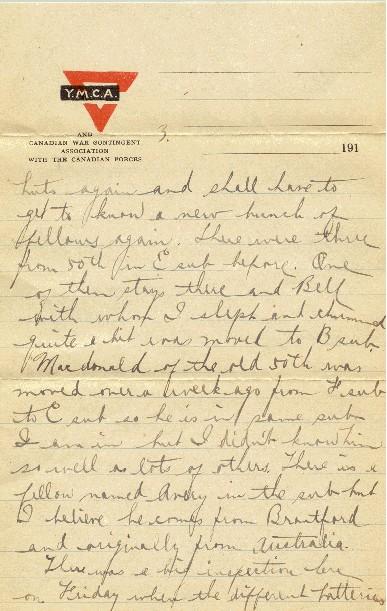 Y.M.C.A.
3.
AND
CANADIAN WAR CONTINGENT
ASSOCIATION
WITH THE CANADIAN FORCES
191
huts again and shall have to
get to know a new bunch of
fellows again. There were three
from 50th in E sub before. One
of them stays there and Bell
with whom I slept and chummed
quite a bit was moved to B sub.
Macdonald of the old 50th was
moved over a week ago from F sub
to E sub so he is in same sub
I am in but I didn't know him
so well as lots of others. There is a
fellow named Avery in the sub but
I believe he comes from Brantford
and originally from Australia.
There was a big inspection here
on Friday when the different batteries